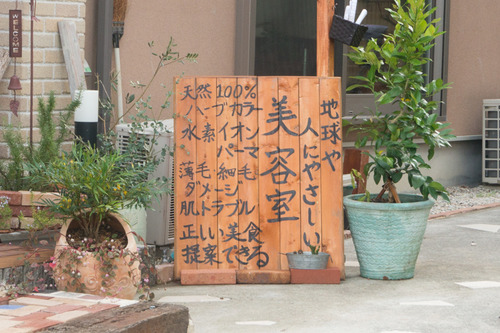 地球や
人にやさしい
美容室
天然100%
ハーブカラー
水素イオン
パーマ
薄毛 細毛
ダメージ
肌トラブル
正しい美食
提案できる
WELCOME